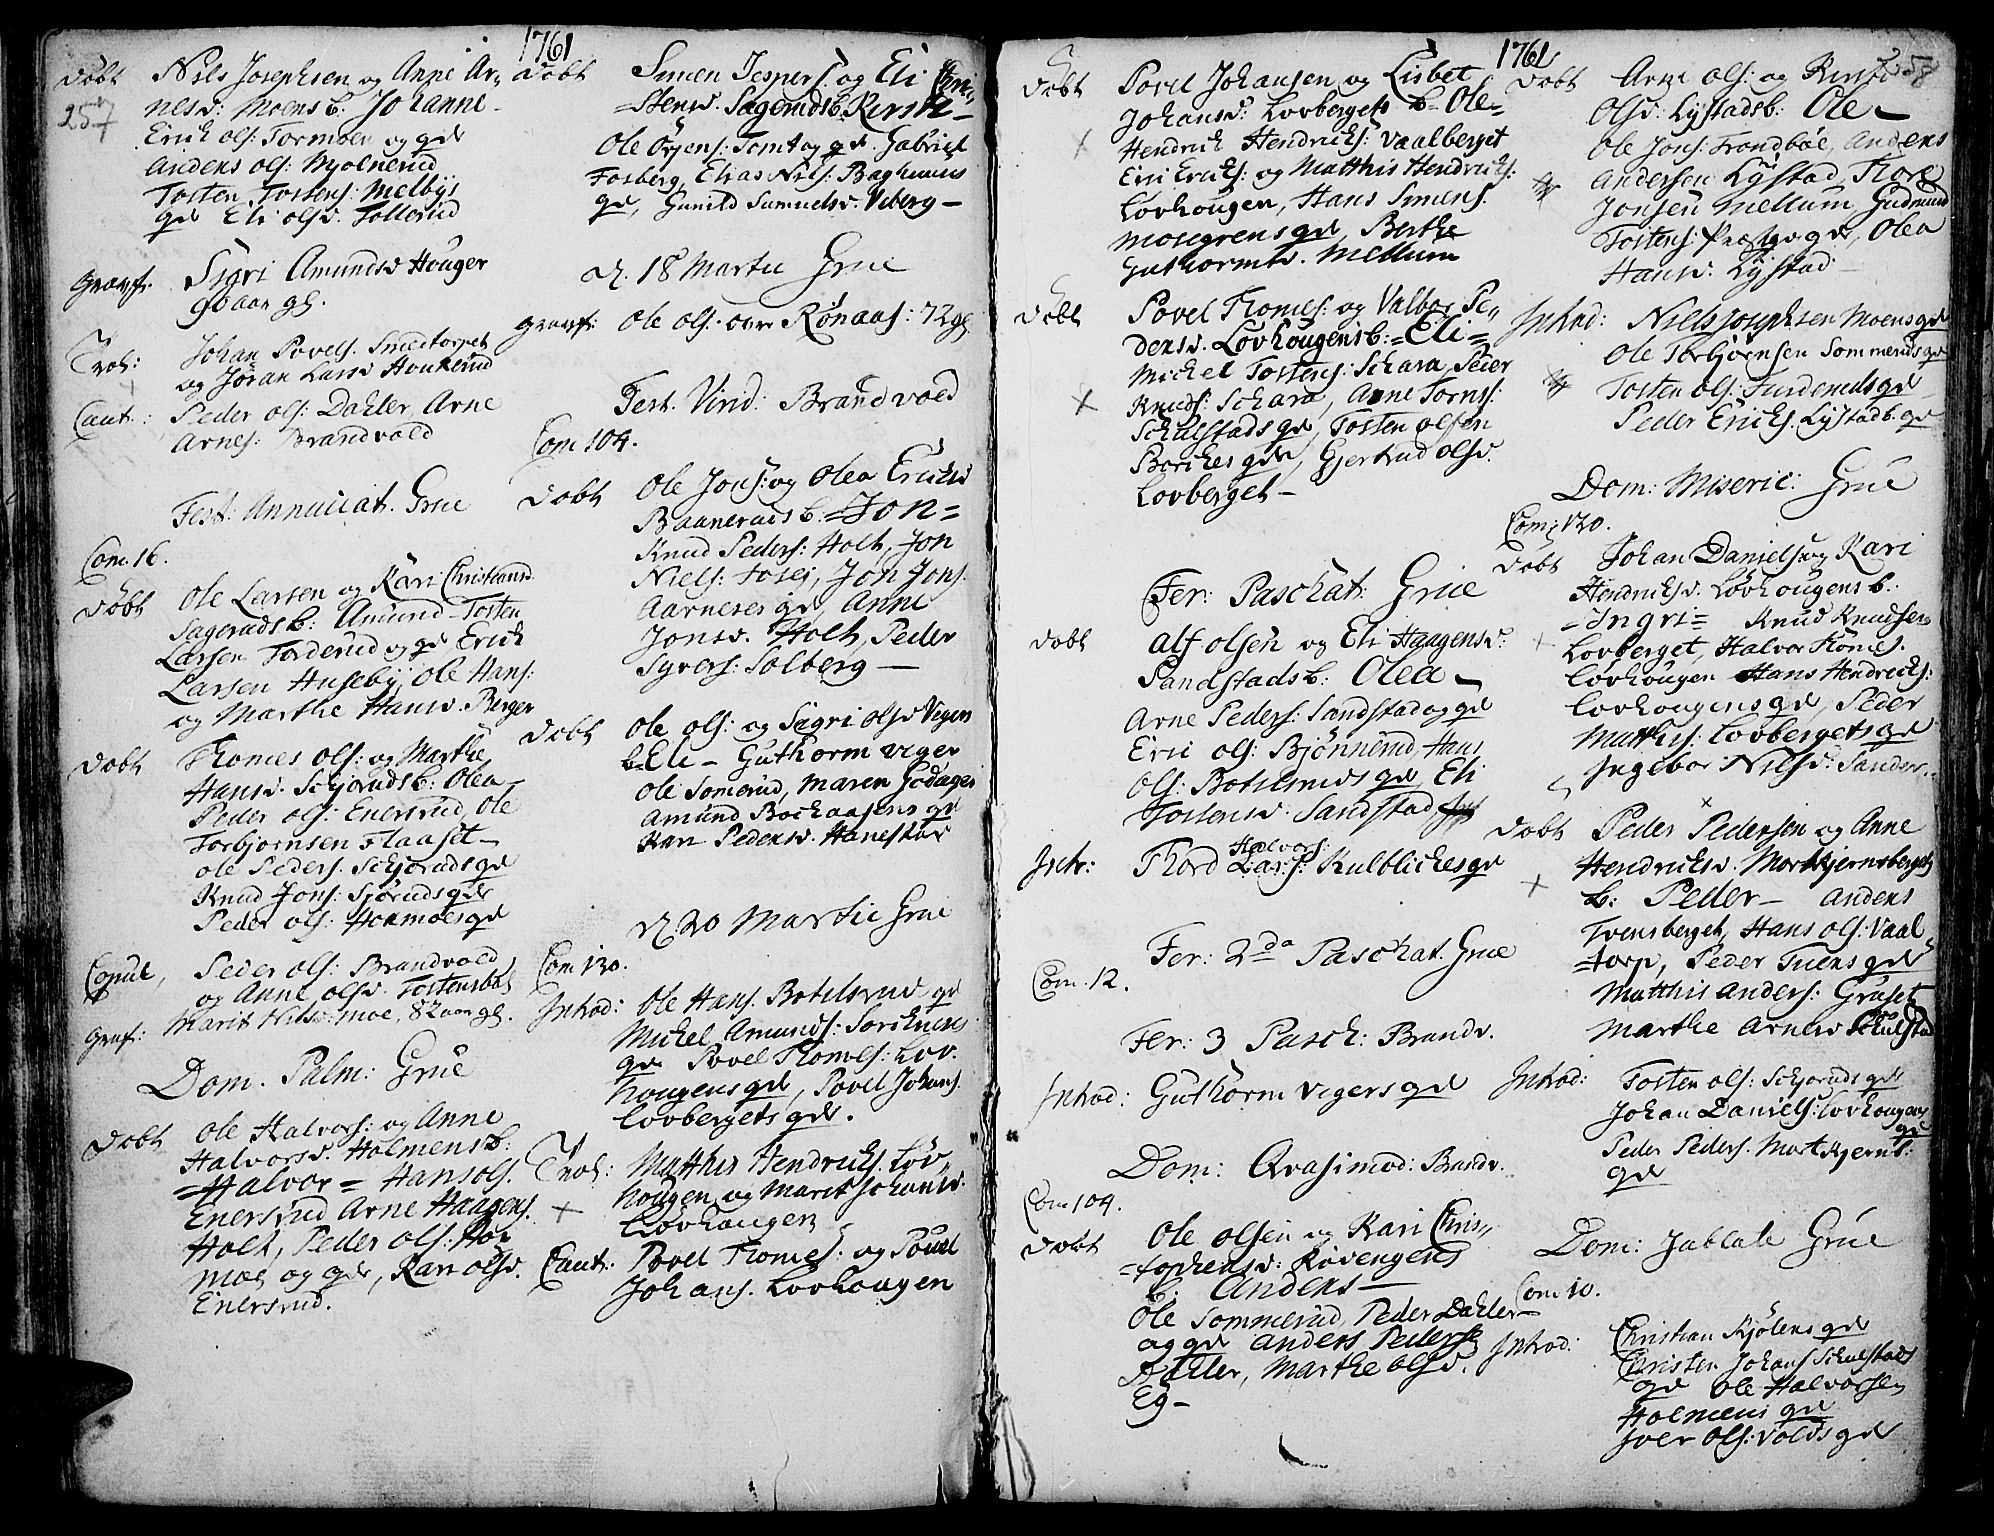 1761
257
Døbt Nils Josephsen og Anne Ar„
nesd: Moens b: Johanne
Erich Ols: Tormoen og qde
Anders Ols: Mjolnerud
Tosten Tostens: Melbys
qde Eli Olsd. Tollerud
Gravf. Sigri Amundsd Houger
90 aar gl.
Trol: Johan Povels. Smedtorpet
og Jøran Larsd Houkerud
Caut: Peder Ols: Dahler, Arne
Arnes: Brandvold
Fest: Annuciat. Grue
Com. 16.
Døbt Ole Larsen og Kari Christiansd
Sagerudsb: Amund Tosten
Larsen Torderud og qde Erich
Larsen Huseby, Ole Hans:
og Marthe Hansd. Berger
Døbt Thomes Ols: og Marthe
Hansd. Schjøruds b: Olea
Peder Ols: Enersrud, Ole
Torbjørnsen Flaaset
Ole Peders. Schjøruds qde
Knud Jons: Sjøruds qde
Peder Ols: Hormoes qde
Copul, Peder Ols: Brandvold
og Anne Olsd. Tostensbøl
Graf: Marit Nilsd: Moe, 82 aar gl.
Dom. Palm: Grue
Døbt Ole Halvors: og Anne
Halvorsd. Holmens b:
=Halvor= Hans Ols.
Enersrud Arne Haagens.
Holt, Peder Ols: Hor
moe og qde, Kari Olsd.
Enersrud.
Døbt Simen Jespers. og Eli Chri„
stensd. Sagerudsb. Kirste
Ole Örjens: Tomt og qde. Gabriel
Fosberg, Elias Nils: Baghuus
qde, Gunild Samuelsd. Viberg
d. 18 Martii Grue
Gravf: Ole Ols. over Rønaas: 72 gl
Fest. Virid: Brandvold
Com 104.
Døbt Ole Jons: og Olea Erichsd
Baaneruds b: =Jon=
Knud Peders: Holt, Jon
Niels: Fosej, Jon Jons.
Aarneses qde, Anne
Jonsd. Holt, Peder
Syvers: Solberg
Døbt Ole Ols: og Sigri Olsd Vegers
b. Eli Guthorm Viger
Ole Somerud, Maren Godager
Amund Bochaasens qde
Kari Pedersd. Hanestad
d. 20 Martii Grue
Com 130.
Introd: Ole Hans. Botelsrud qde
Michel Amunds: Sorchnes
qde Povel Thomes: Lov.
hougens qde, Povel Johans.
Lovbergets qde.
Trol: Matthis Hendrichs. Løv„
hougen og Marit Johansd.
Løvhougen
Caut: Povel Thomes. og Povel
Johans. Lovhougen
1761
258
Døbt Povel Johansen og Lisbet
Johansd: Lovbergets b. Ole
Hendrich Hendrichs: Vaalberget
Eric Erichs: og Matthis Hendrichs:
Lovhougen, Hans Simens.
Mosegrens qde, Berthe
Guthormsd. Mellum
Døbt Povel Thomes: og Valbor Pe„
dersd. Lovhougens b: =Eli=
Michel Tostens: Schara, Peder
Knuds: Schara, Arne Torns:
Schulstads qde, Tosten Olsen
Borches qde, Gjertrud Olsd.
Lovberget
Fer: Paschat: Grue
Døbt Alf Olsen og Eli Haagensd:
Sandstads b: Olea
Arne Peders: Sandstad og qde
Eric Ols: Bjønnerud, Hans
Ols: Botelsruds qde, Eli
Tostensd: Sandstad
Intr: Thord Halvors: Kulblickes qde
Fer: 2da Paschat. Grue
Com. 12.
Fer: 3 Pasch: Brandv.
Introd: Guthorm Vegers qde
Dom: Qvasimod: Brandv.
Com 104.
Døbt Ole Olsen og Kari Chris„
tophersd: Rövengens
b: Anders
Ole Sommerud, Peder Dahler
og qde Anders Peders
Dahler, Marthe Olsd.
Eg
Døbt Arne Ols: og Kirsti
Olsd: Lystads b: Ole
Ole Jons: Trondbøe, Anders
Andersen Lystad, Thore
Jonsen Mellum, Gudmund
Tostens: Præstg. qde, Olea
Hansd: Lystad
Introd: Niels Josephsen Moens qde
Ole Torbjørnsen Sommeruds qde
Tosten Ols: Furderuds qde
Peder Erichs. Lystadb. qde
Dom: Miseric: Grue
Com: 130.
Døbt Johan Daniels. og Kari
Hendrichsd. Løvhougens b:
=Ingri= Knud Knudsen
Lovberget, Halvor Thomes.
Lovhougen Hans Hendrichs:
Lovhougens qde, Peder
Matthis: Lovbergets qde
Ingebor Nilsd: Sander
Døbt Peder Pedersen og Anne
Hendrichsd. Mortkjernsbergets
b: Peder Anders
Tvensberget, Hans Ols: Vaal
torp, Peder Tuens qde
Matthis Anders: Gruset
Marthe Arnesd Schulstad
Introd: Tosten Ols: Schjøruds qde
Johan Daniels: Lovhougens
qde
Peder Peders. Mortkjernb:
qde
Dom: Jubilate Grue
Com 10.
Introd: Christian Kjølens qde
Christen Johans Schulstads
qde Ole Halvorsen
Holmens qde
Iver Ols: Volds qde